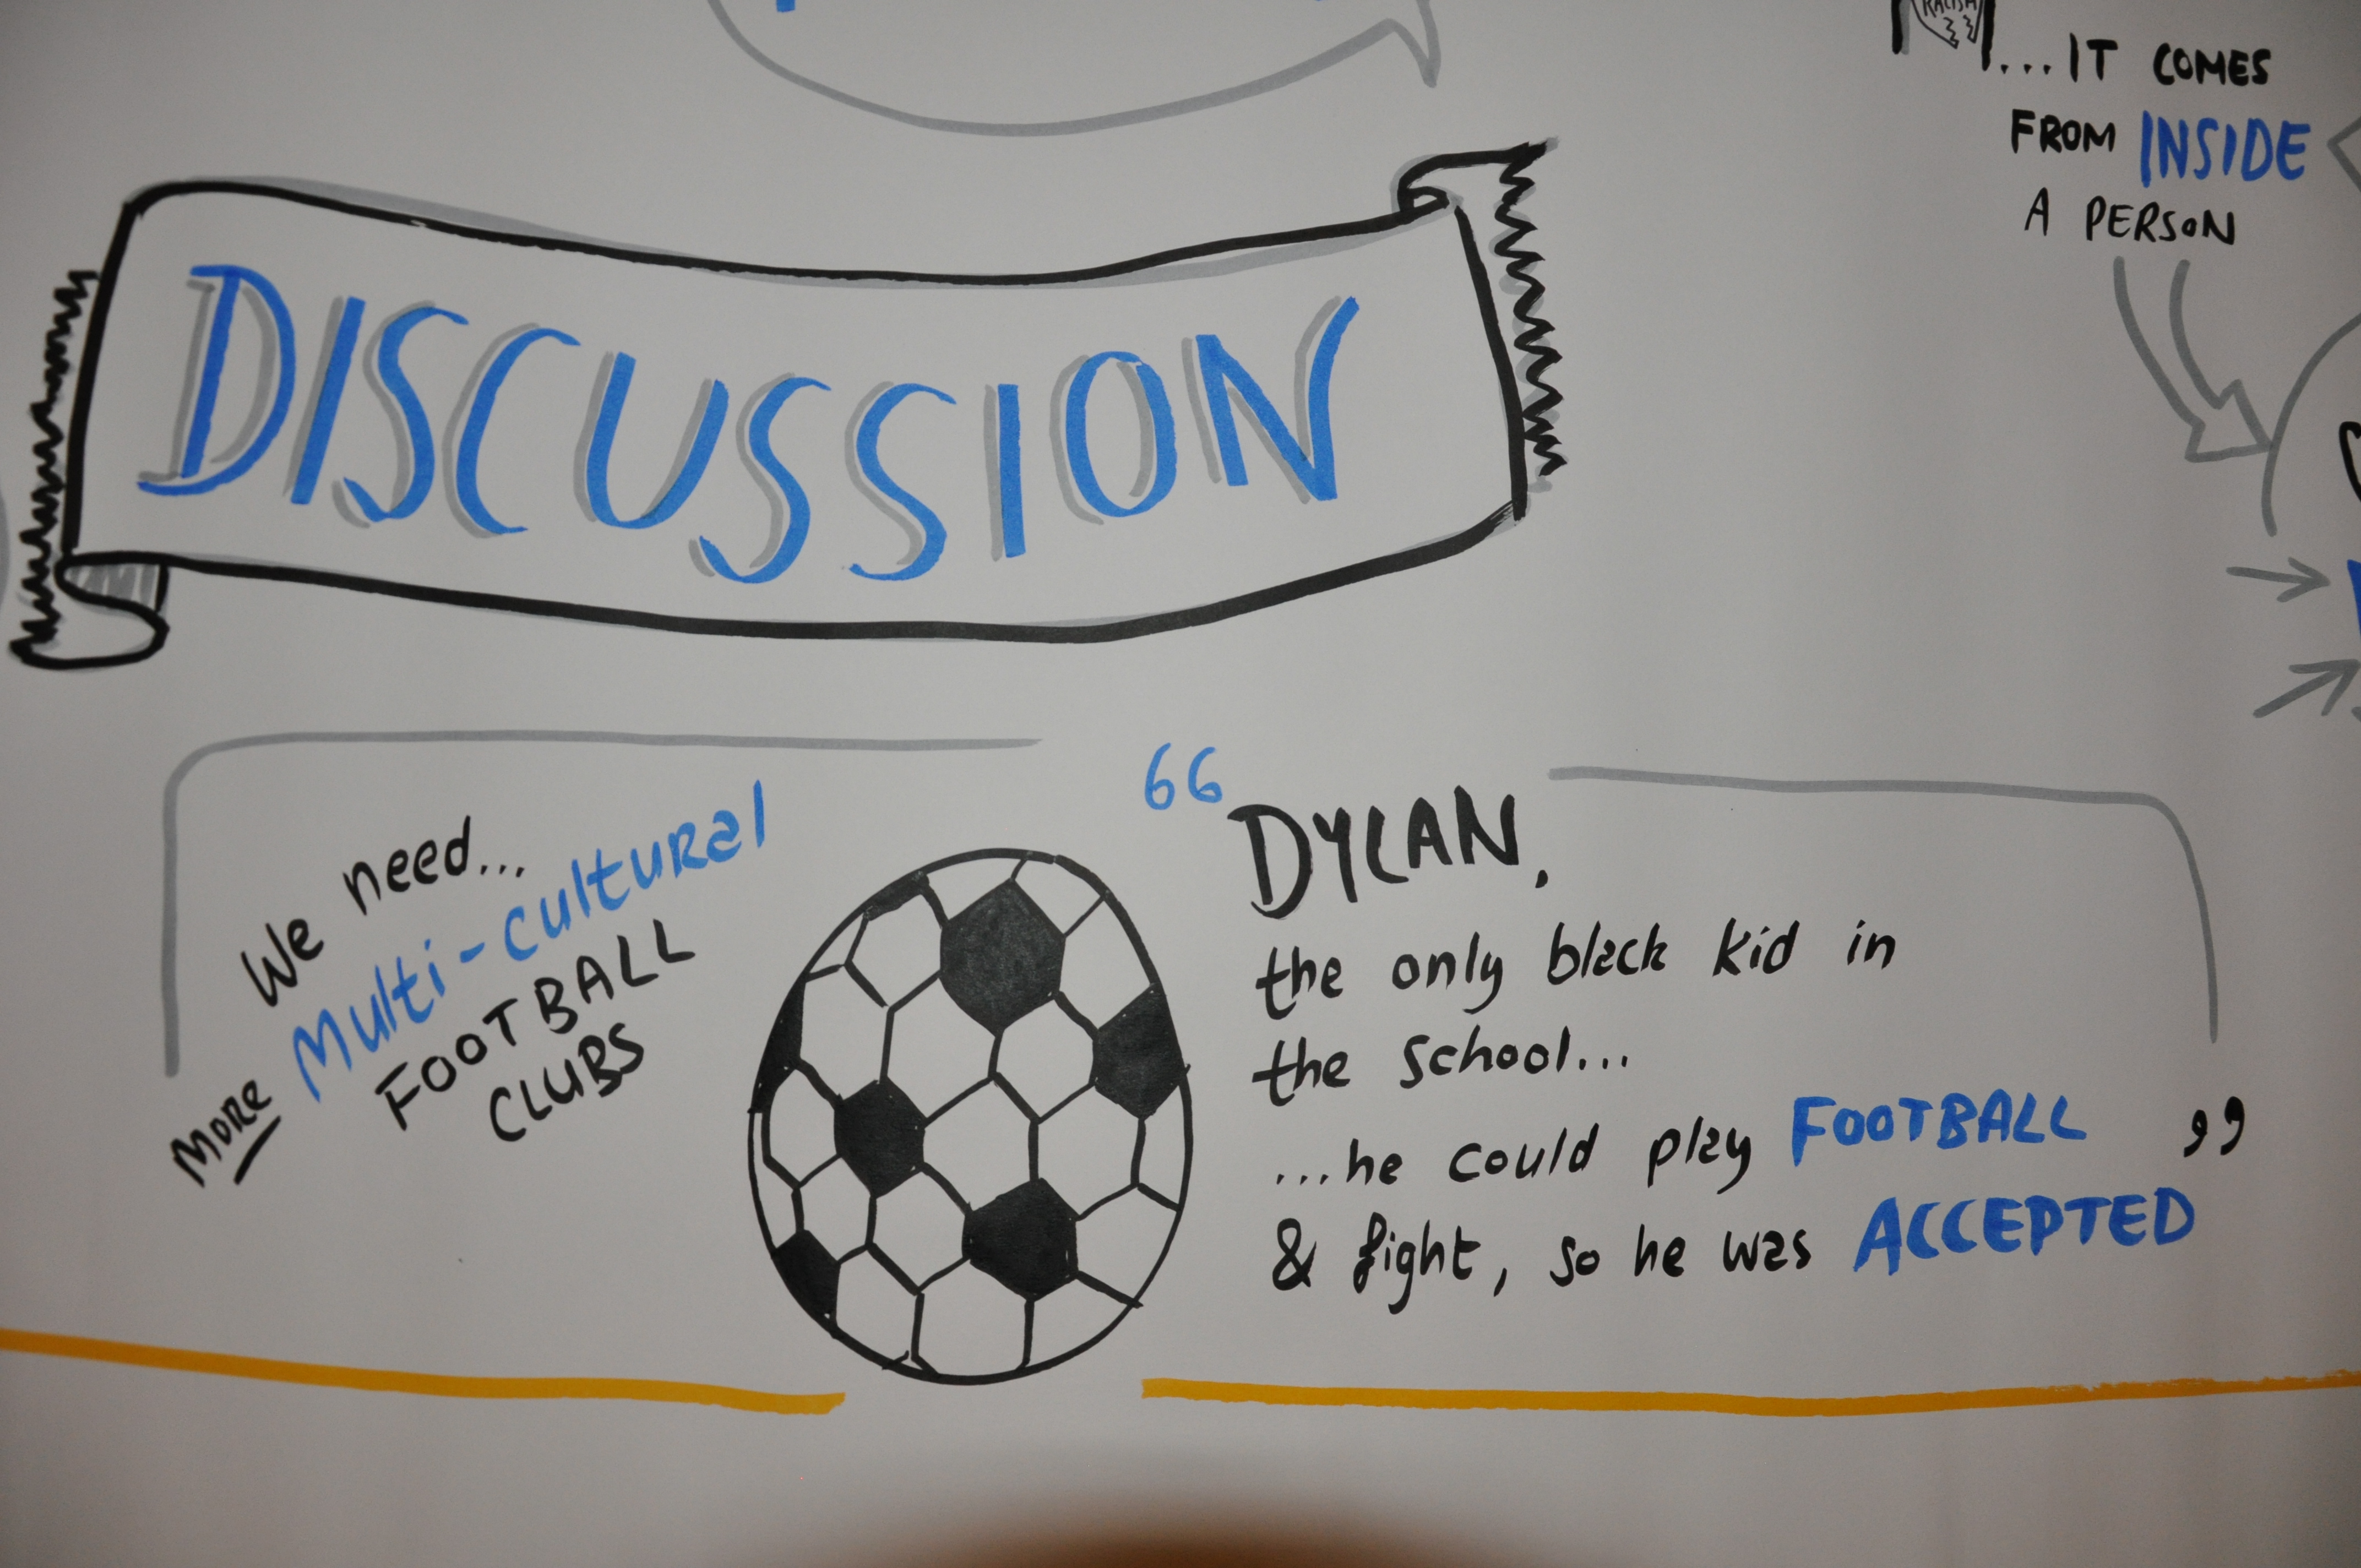 RACISM
...IT COMES
FROM INSIDE
A PERSON
DISCUSSION
We need...
MORE Multi-cultural
FOOTBALL
CLUBS
“DYLAN,
the only black kid in
the school...
...he could play FOOTBALL ”
& fight, so he was ACCEPTED